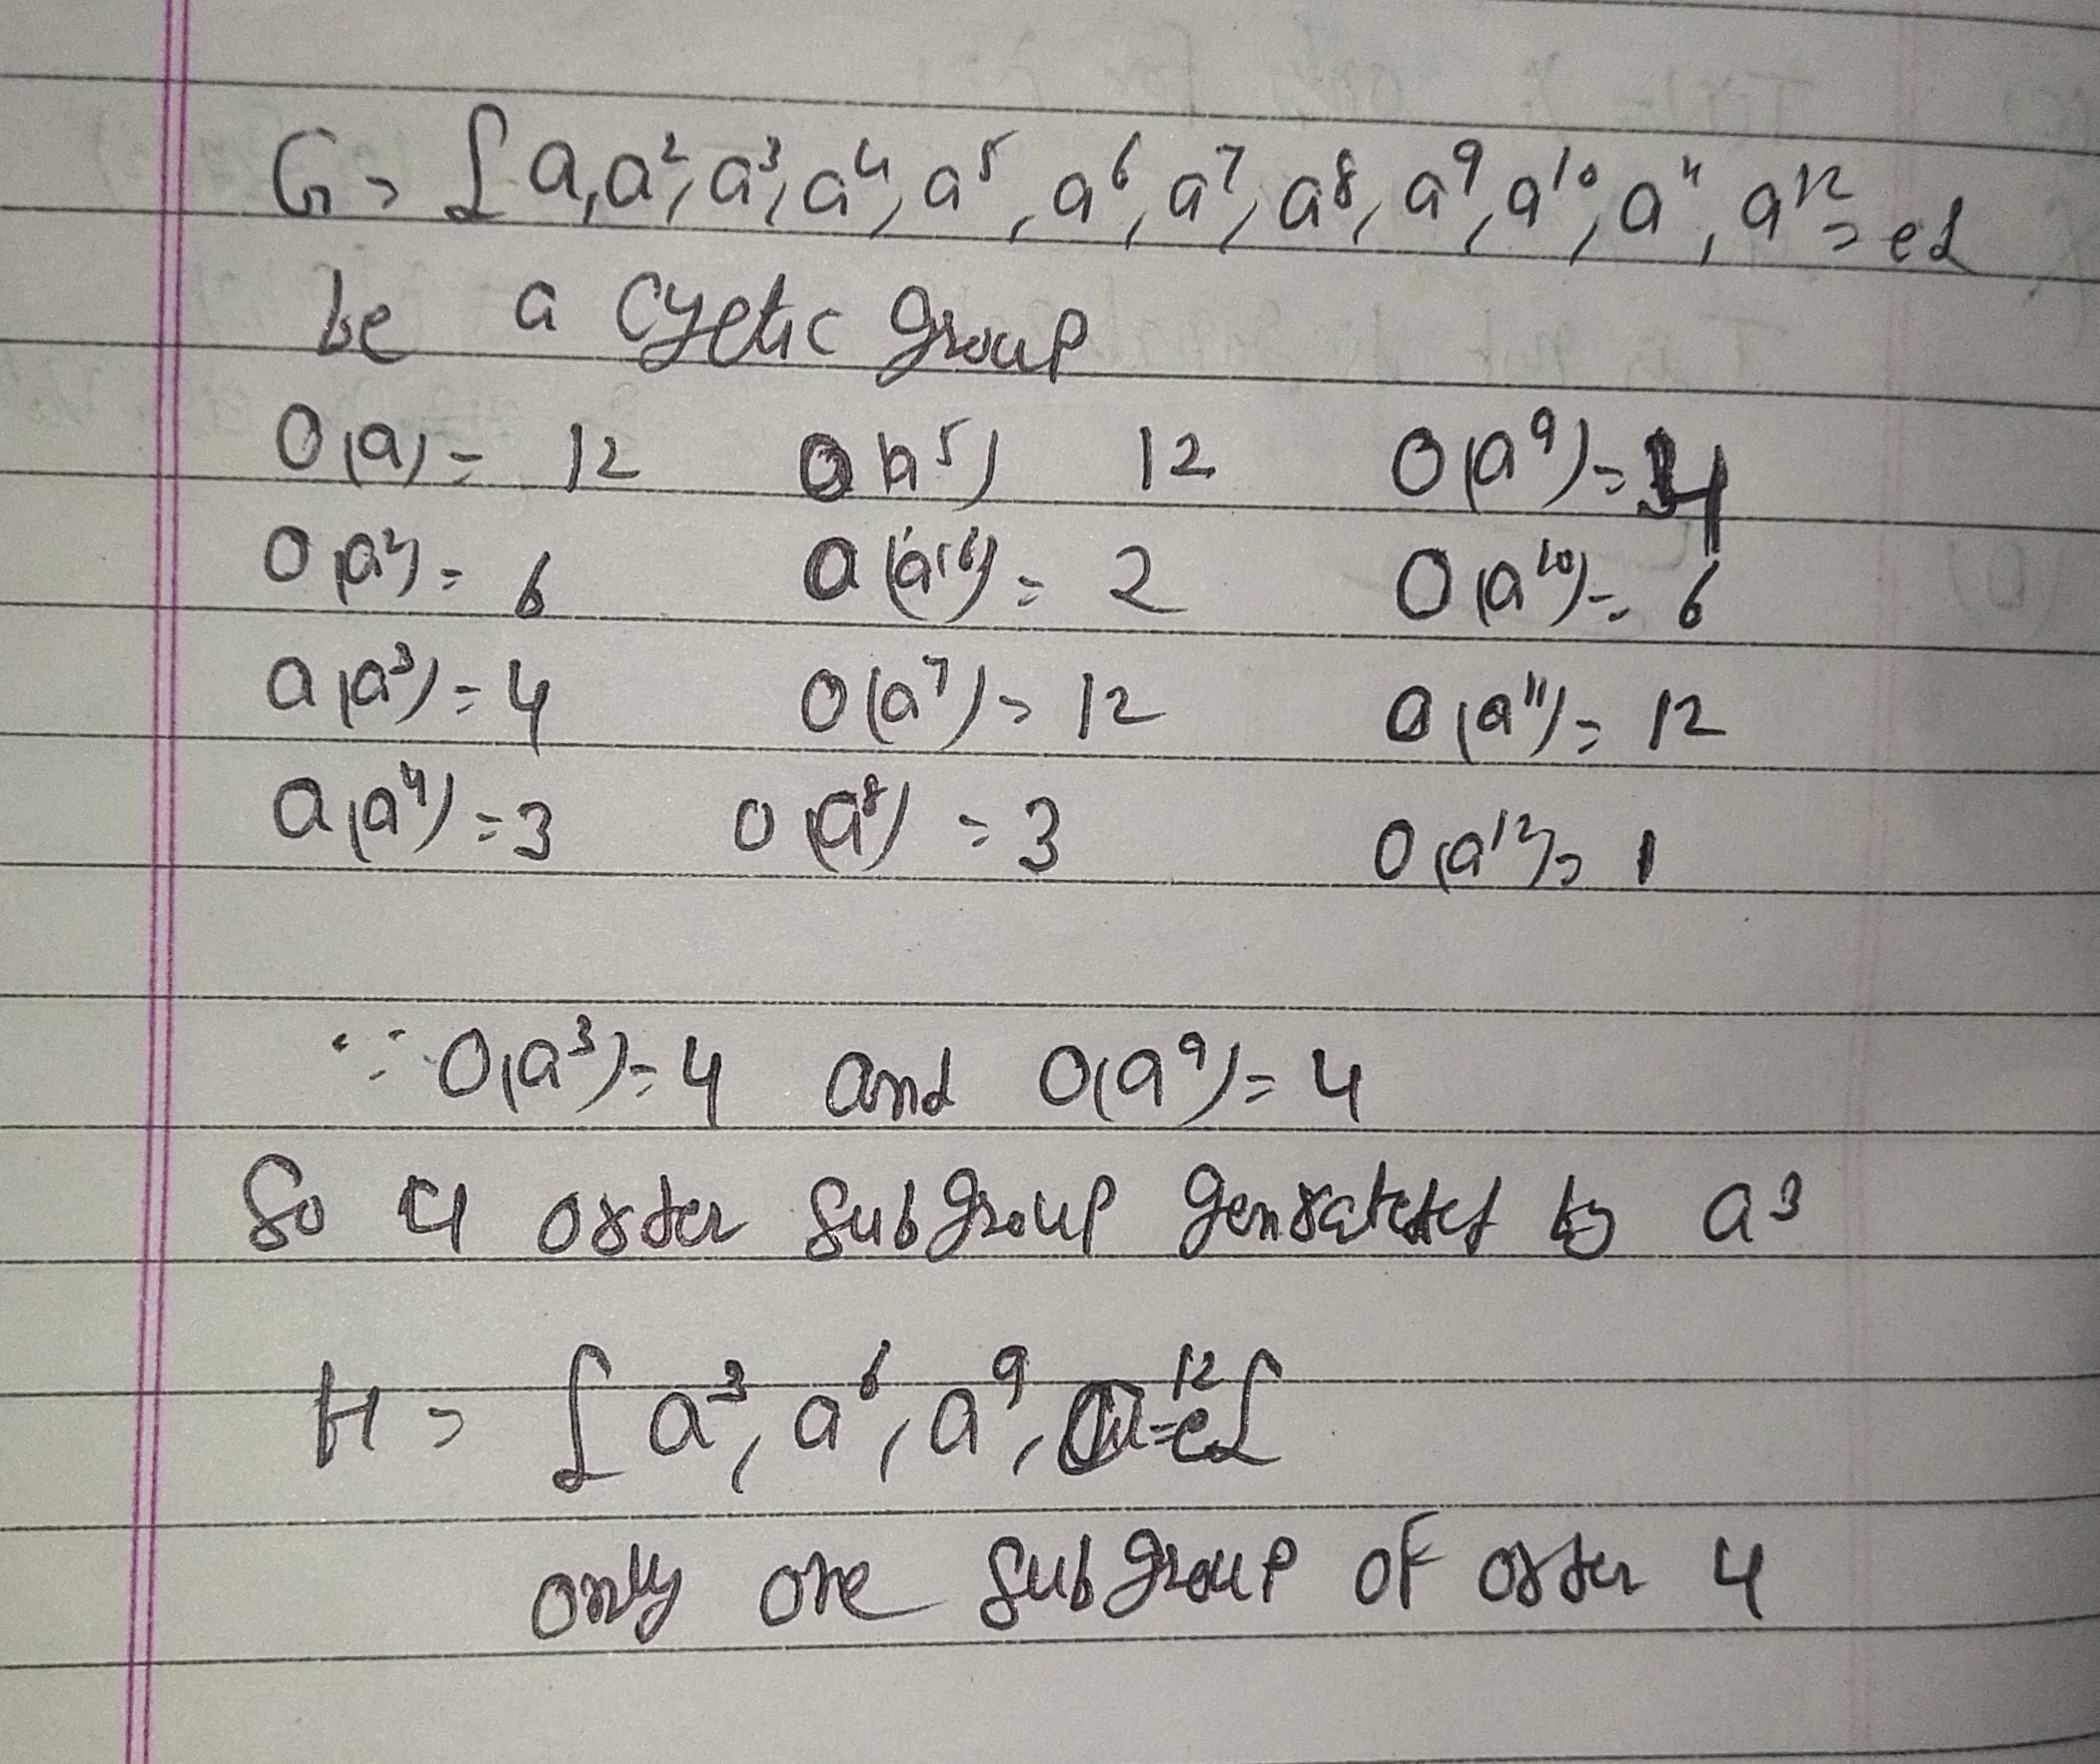 G = { a, a², a³, a⁴, a⁵, a⁶, a⁷, a⁸, a⁹, a¹⁰, a¹¹, a¹² = e }
be a cyclic group
O(a) = 12 O(a⁵) 12 O(a⁹) = 4
O(a²) = 6 O(a⁶) = 2 O(a¹⁰) = 6
O(a³) = 4 O(a⁷) = 12 O(a¹¹) = 12
O(a⁴) = 3 O(a⁸) = 3 O(a¹²) = 1
∵ O(a³) = 4 and O(a⁹) = 4
So 4 order subgroup by a³
H = { a³, a⁶, a⁹, a¹² = e }
only one subgroup of order 4